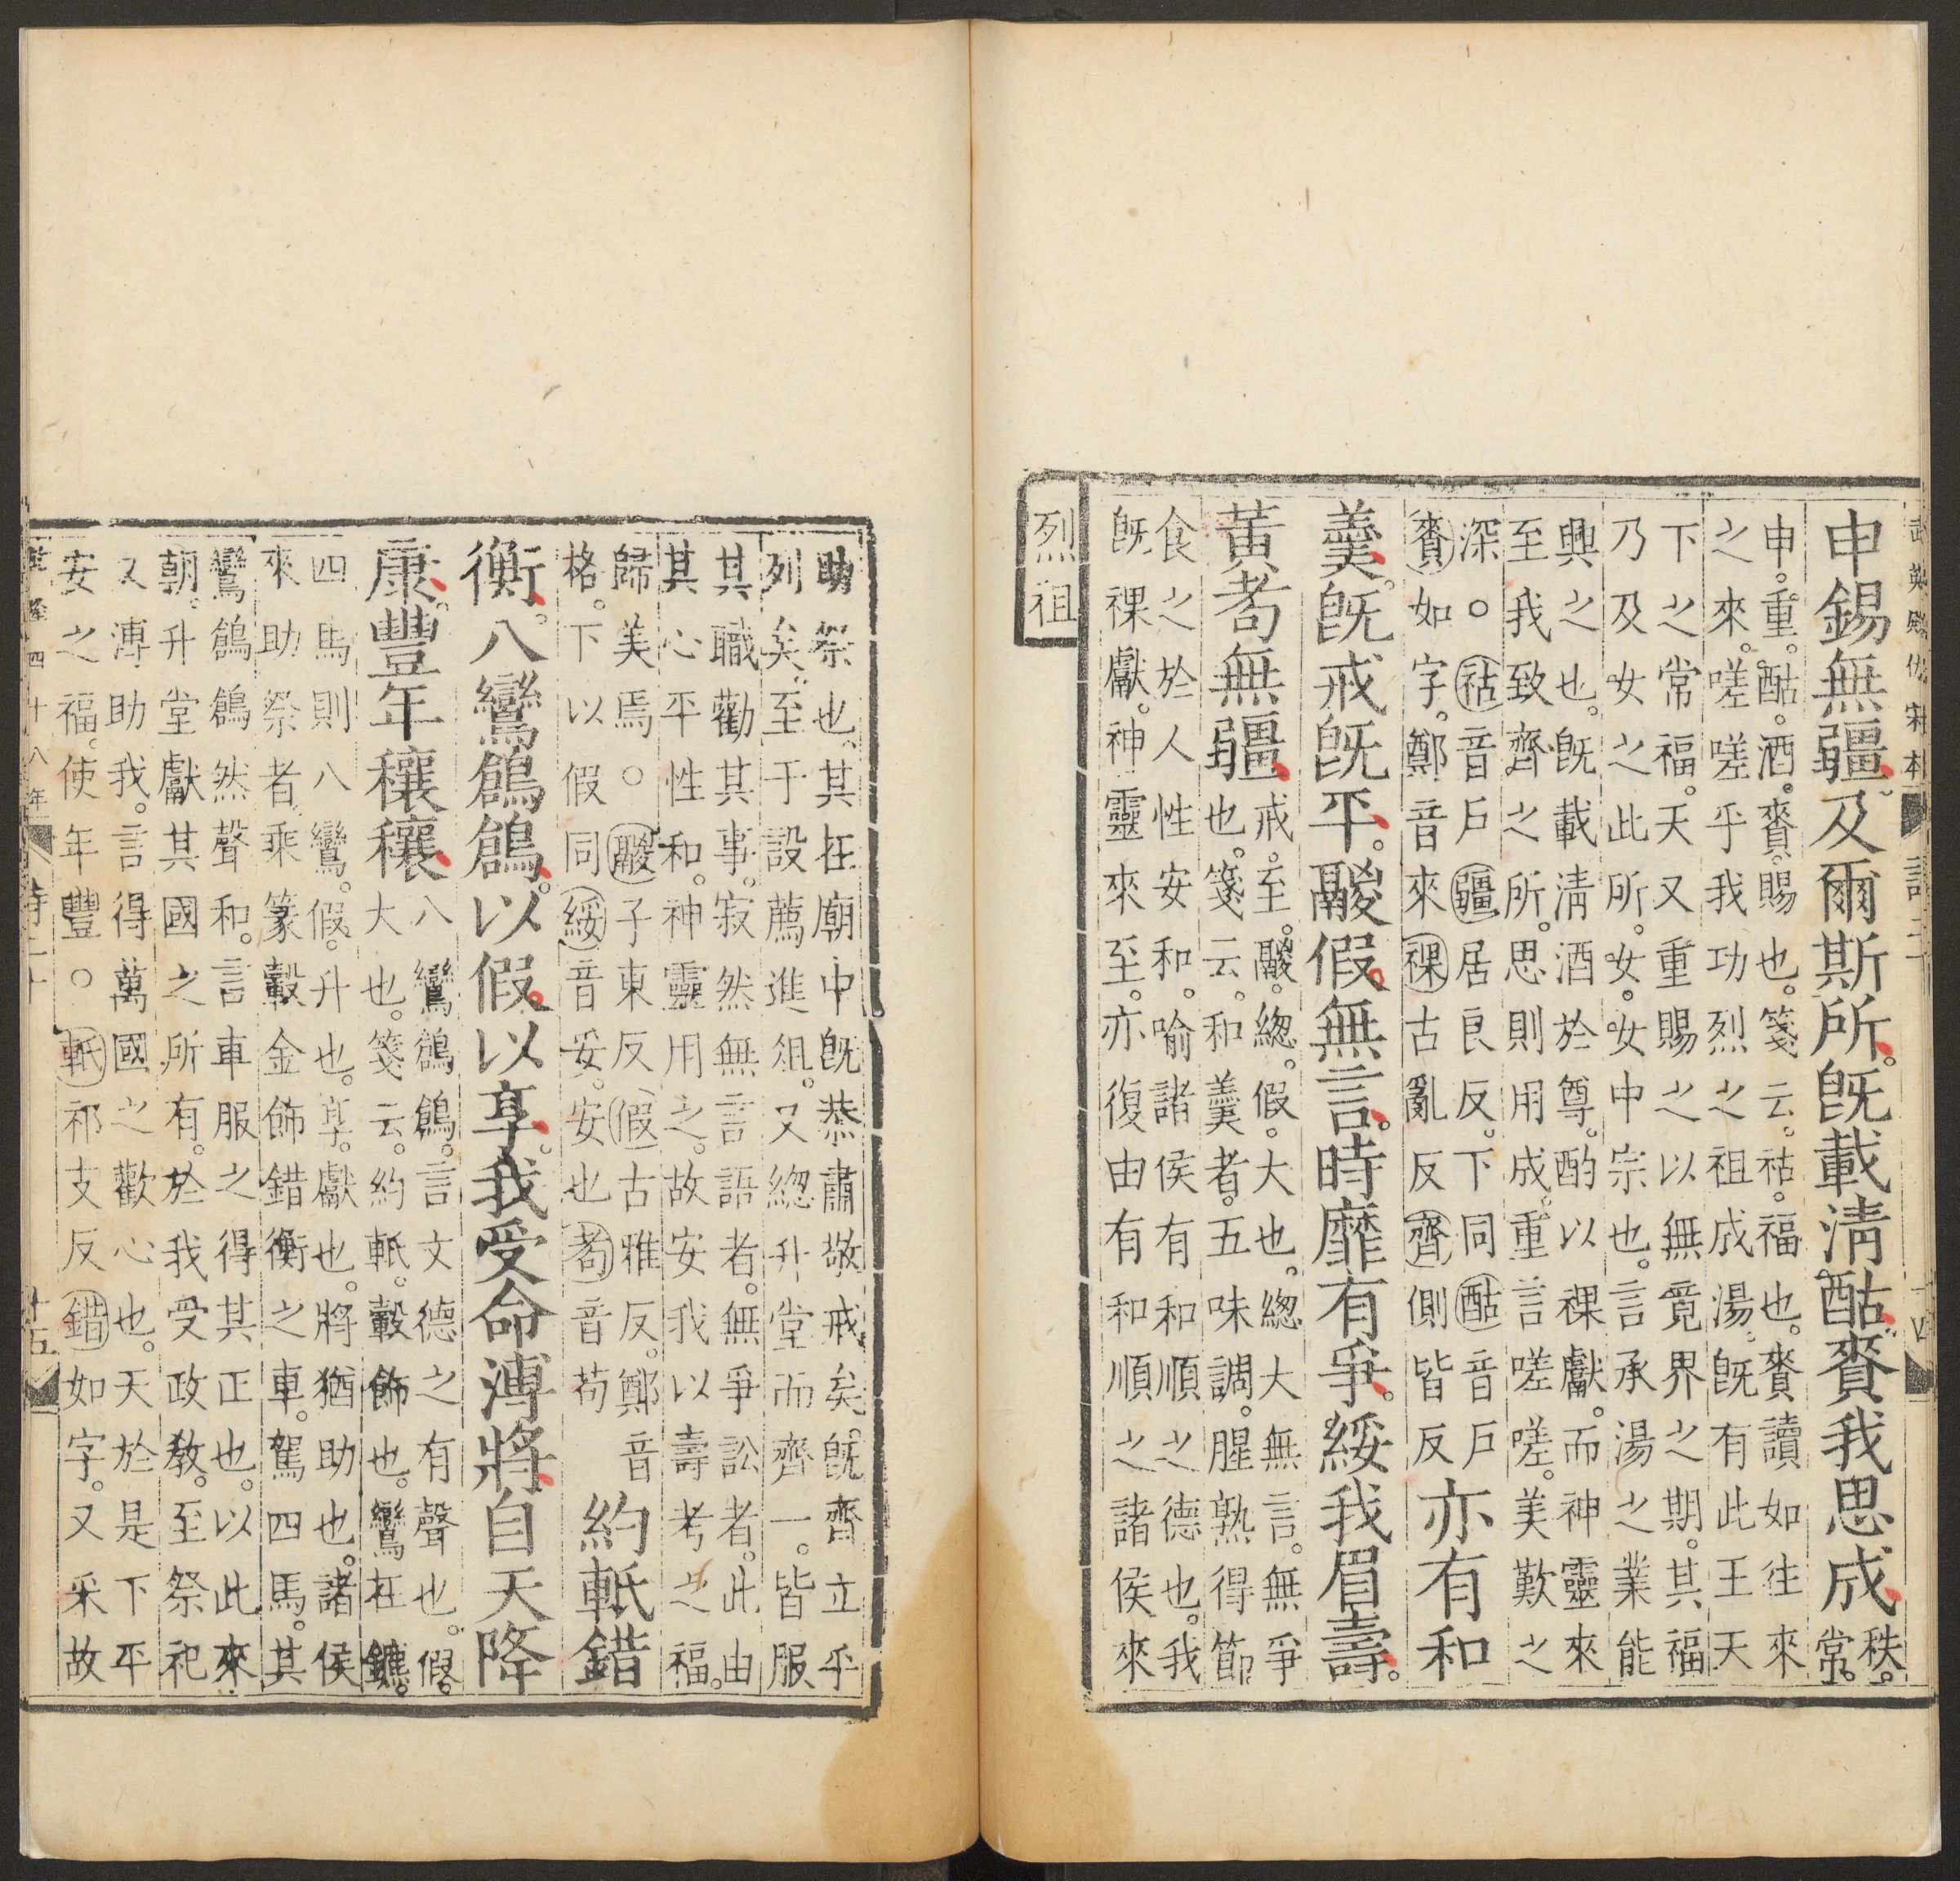 武英殿仿宋本 詩二十
申錫無疆。及爾斯所。旣載淸酤。賚我思成。秩。常。
申。重。酤。酒。賚。賜也。箋云。祜。福也。賚讀如往來
之來。嗟嗟乎我功烈之祖成湯。旣有此王天
下之常福。天又重賜之以無竟界之期。其福
乃及女之此所。女。女中宗也。言承湯之業能
興之也。旣載淸酒於尊。酌以祼獻。而神靈來
至我致齊之所。思則用成。重言嗟嗟。美歎之
深。○祜音戶疆居良反。下同酤音戶
賚如字。鄭音來祼古亂反齊側皆反
亦有和
羹。旣戒旣平。鬷假無言。時靡有爭。綏我眉壽。
黃耇無疆。
戒。至。鬷。緫。假。大也。緫大無言。無爭
也。箋云。和羹者。五味調。腥熟得節
食之於人性安和。喻諸侯有和順之德也。我
旣祼獻。神靈來至。亦復由有和順之諸侯來
烈祖
助祭也。其在廟中旣恭肅敬戒矣。旣齊立乎
列矣。至于設薦進俎。又緫升堂而齊一。皆服
其職勸其事。寂然無言語者。無爭訟者。此由
其心平性和。神靈用之。故安我以壽考之福。
歸美焉。○鬷子東反假古雅反。鄭音
格。下以假同綏音妥。安也耇音苟
約軧錯
衡。八鸞鶬鶬。以假以享。我受命溥將。自天降
康。豐年穰穰。
八鸞鶬鶬。言文德之有聲也。假。
大也。箋云。約軧。轂飾也。鸞在鑣。
四馬則八鸞。假。升也。享。獻也。將猶助也。諸侯
來助祭者乘篆轂金飾錯衡之車。駕四馬。其
鸞鶬鶬然聲和。言車服之得其正也。以此來
朝。升堂獻其國之所有。於我受政敎。至祭祀
又溥助我。言得萬國之歡心也。天於是下平
安之福。使年豐。○軧祁支反錯如字。又采故
乾隆四十八年 詩二十 十五